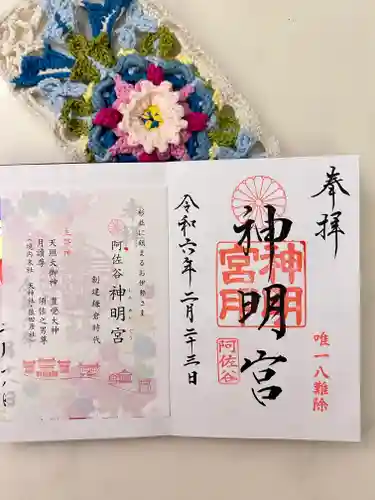 奉拝
唯一八難除
神明宮
神明宮
阿佐谷
令和六年二月二十三日
杉並に鎮まるお伊勢さま
阿佐谷 神明宮
しんめいぐう
創建鎌倉時代
主祭神
天照大御神 豊受大神
月讀尊 須佐之男尊